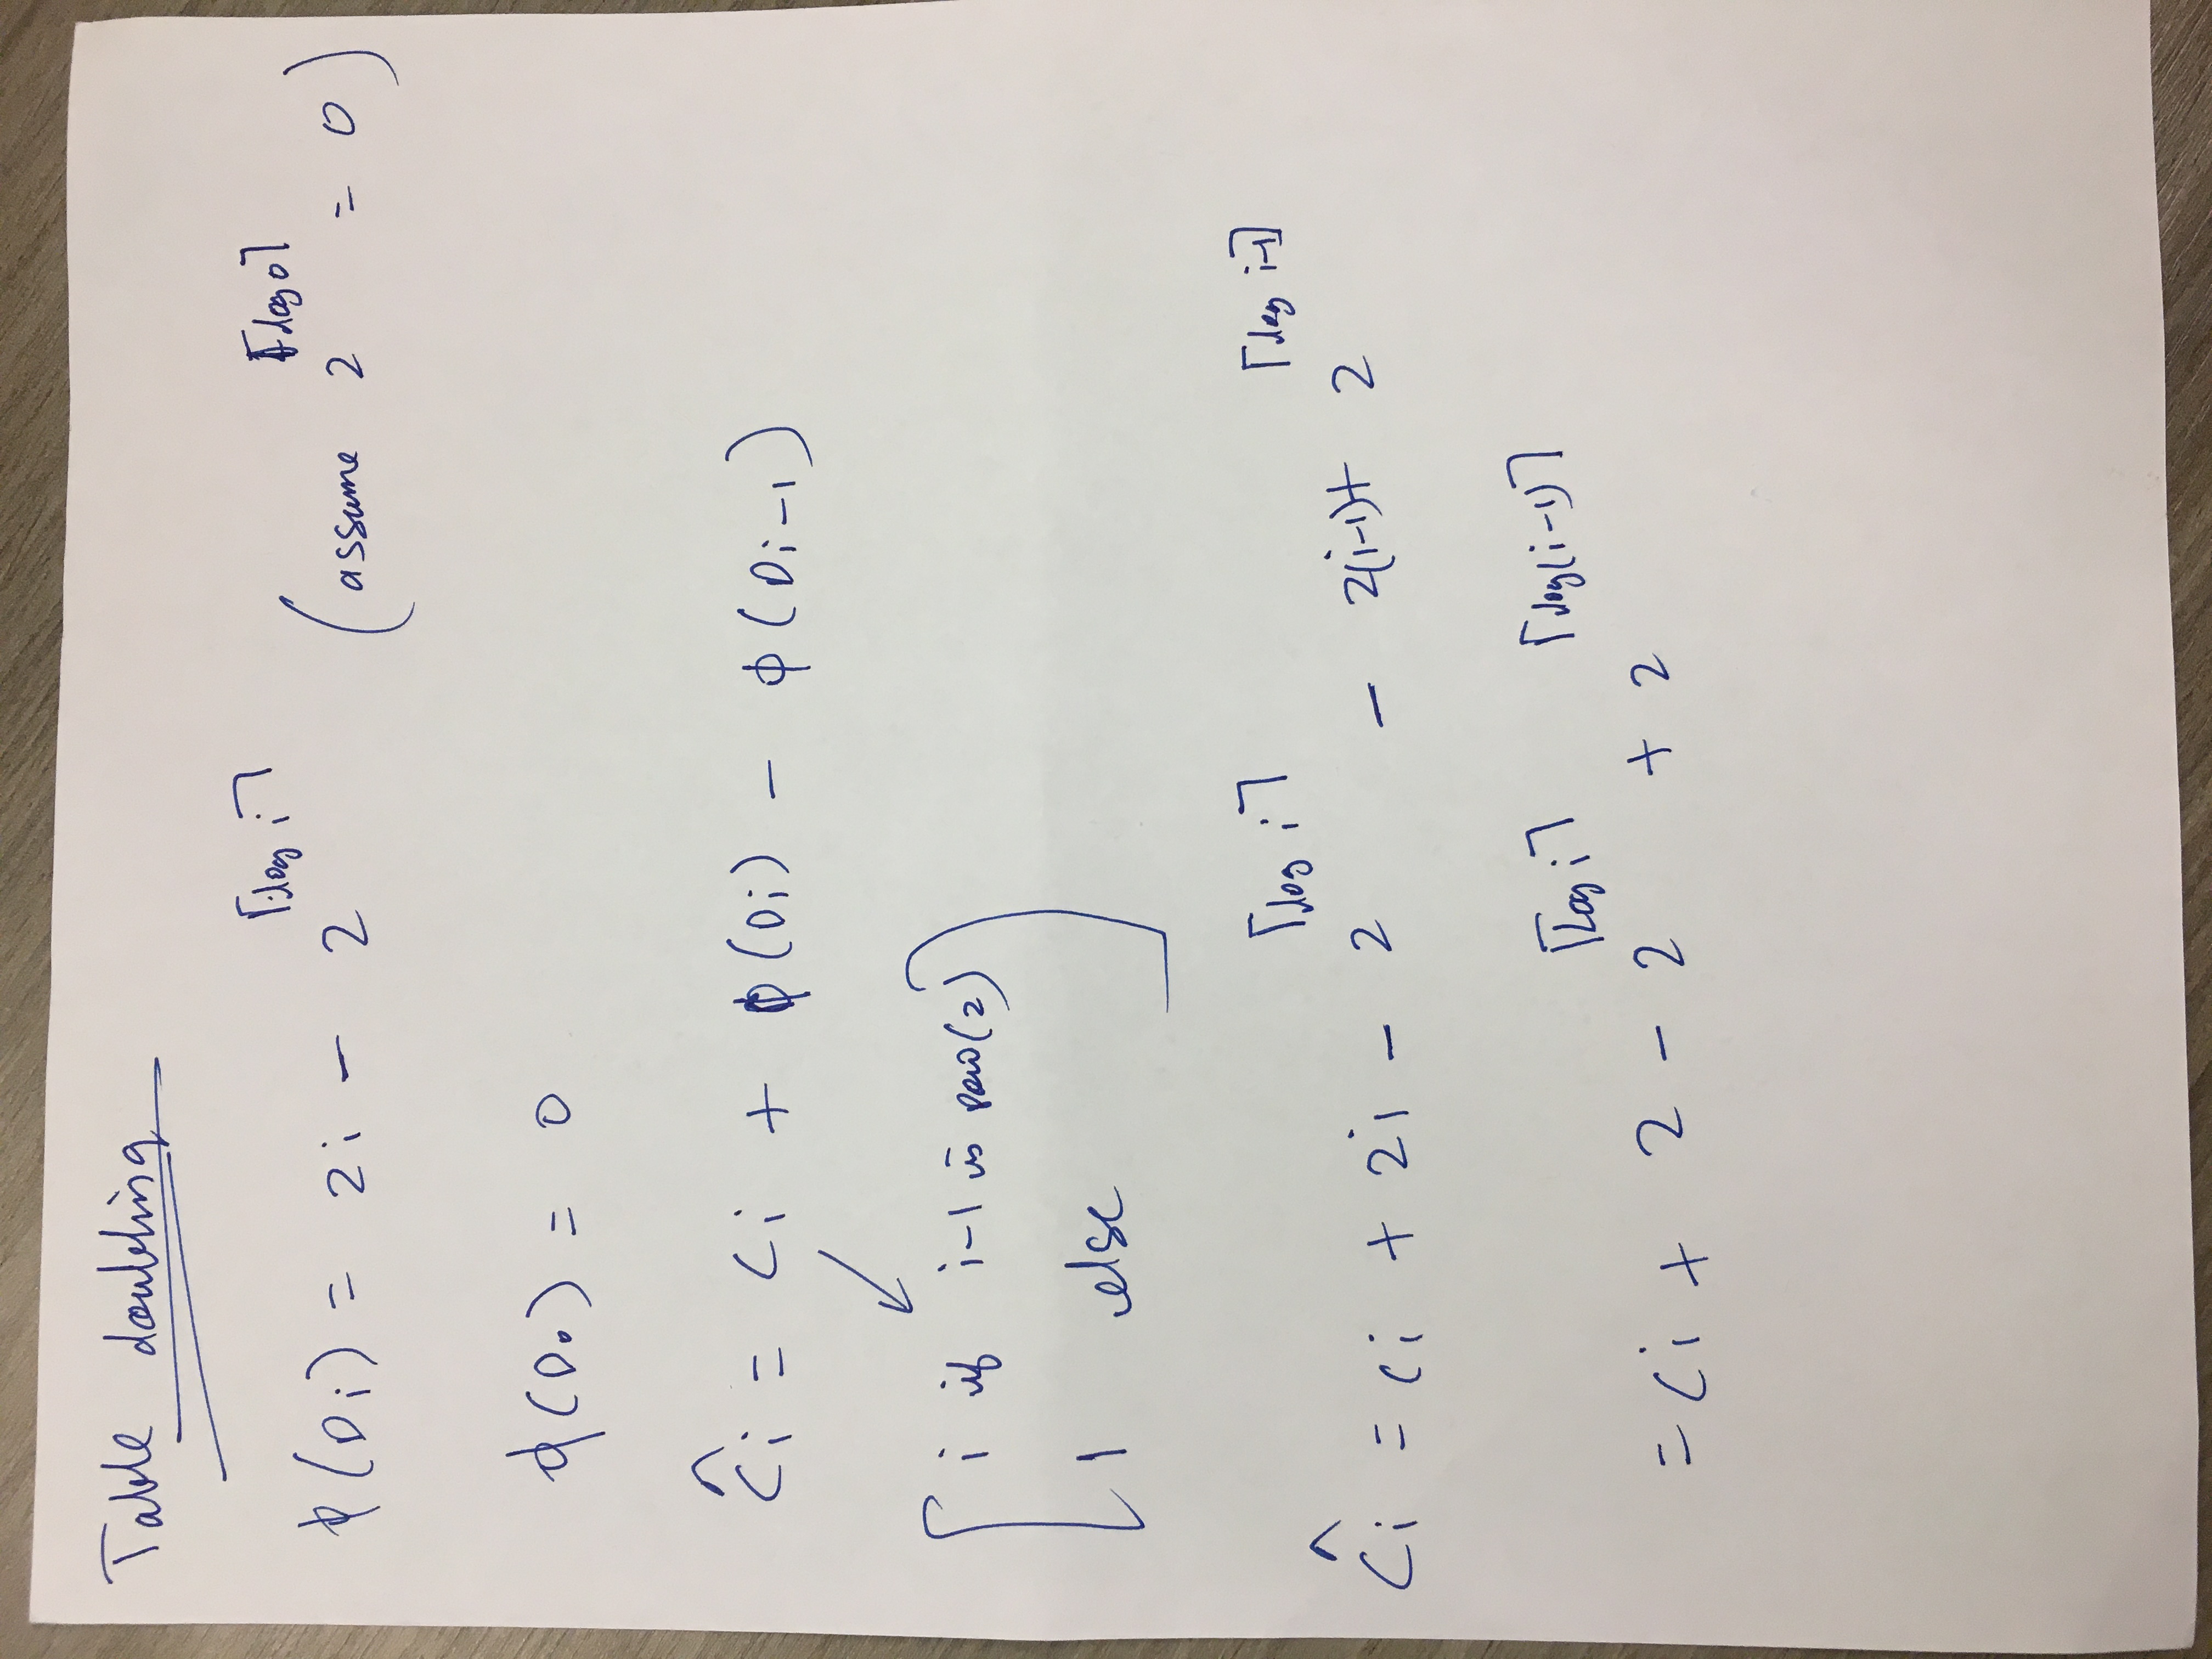 Table doubling
ϕ(Di) = 2i - 2^⌈log i⌉ (assume 2^⌈log 0⌉ = 0)
ϕ(D0) = 0
Ĉi = Ci + ϕ(Di) - ϕ(Di-1)
[ i if i-1 is pow(2)
1 else ]
Ĉi = Ci + 2i - 2^⌈log i⌉ - 2(i-1) + 2^⌈log i-1⌉
= Ci + 2 - 2^⌈log i⌉ + 2^⌈log(i-1)⌉